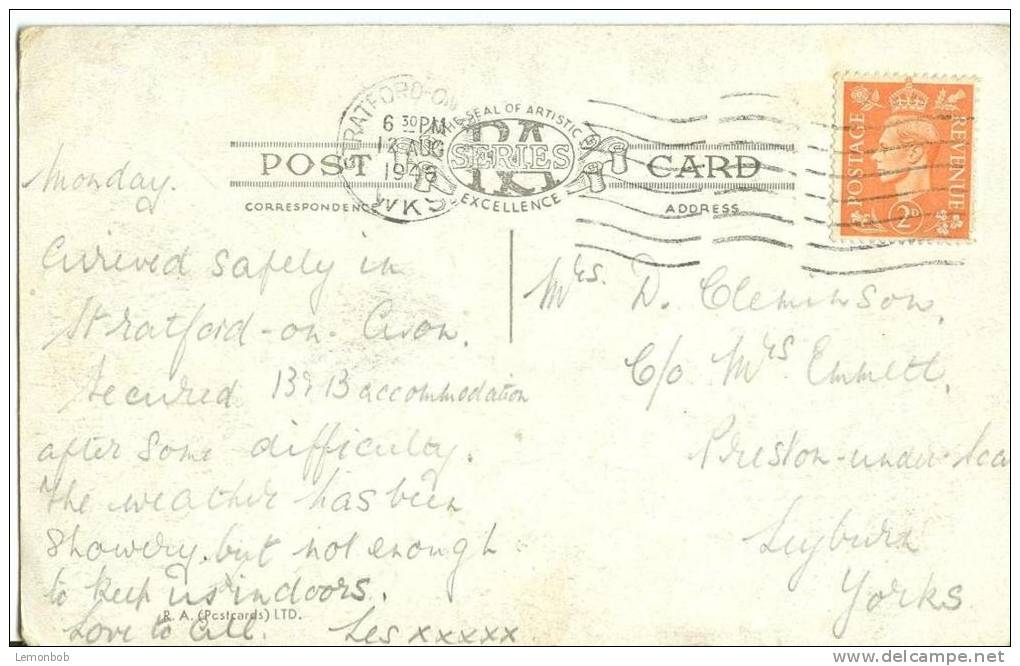 STRATFORD-ON
6 30 PM
12 AUG
194
WKS
THE SEAL OF ARTISTIC
RA
SERIES
EXCELLENCE
POST CARD
CORRESPONDENCE
ADDRESS
POSTAGE REVENUE
2D
Monday.
Arrieved safely in
Stratford-on-Avon.
Secured B&B accommodation
after some difficulty.
The weather has been
showery, but not enough
to keep us indoors.
Love to all. Les xxxxx
Mrs. D. Cleminson,
C/o Mrs Emmett,
Preston-under-Sca
Leyburn
Yorks
R. A. (Postcards) LTD.
Lemonbob
delcampe.net